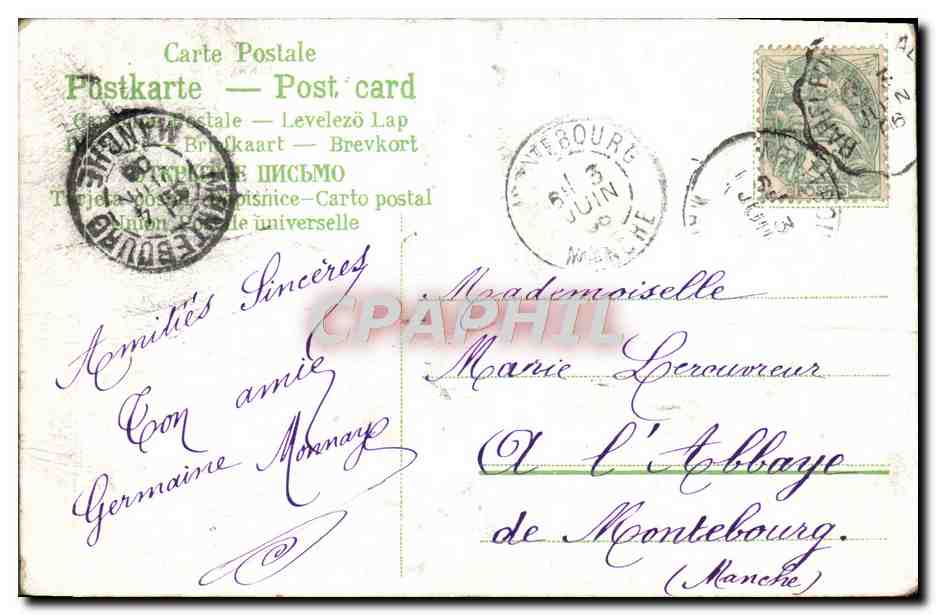 Carte Postale
Postkarte — Post card
Postale — Levelező Lap
Briefkaart — Brevkort
ОТКРЫТОЕ ПИСЬМО
Tarjeta Dopisnice-Carto postal
Union universelle
MONTEBOURG
MANCHE
MONTEBOURG
6H 3
JUIN
MANCHE
3
CPAPHIL
Amitiés Sincères
Ton amie
Germaine Monnaye
Mademoiselle
Marie Lecouvreur
A l'Abbaye
de Montebourg.
(Manche)